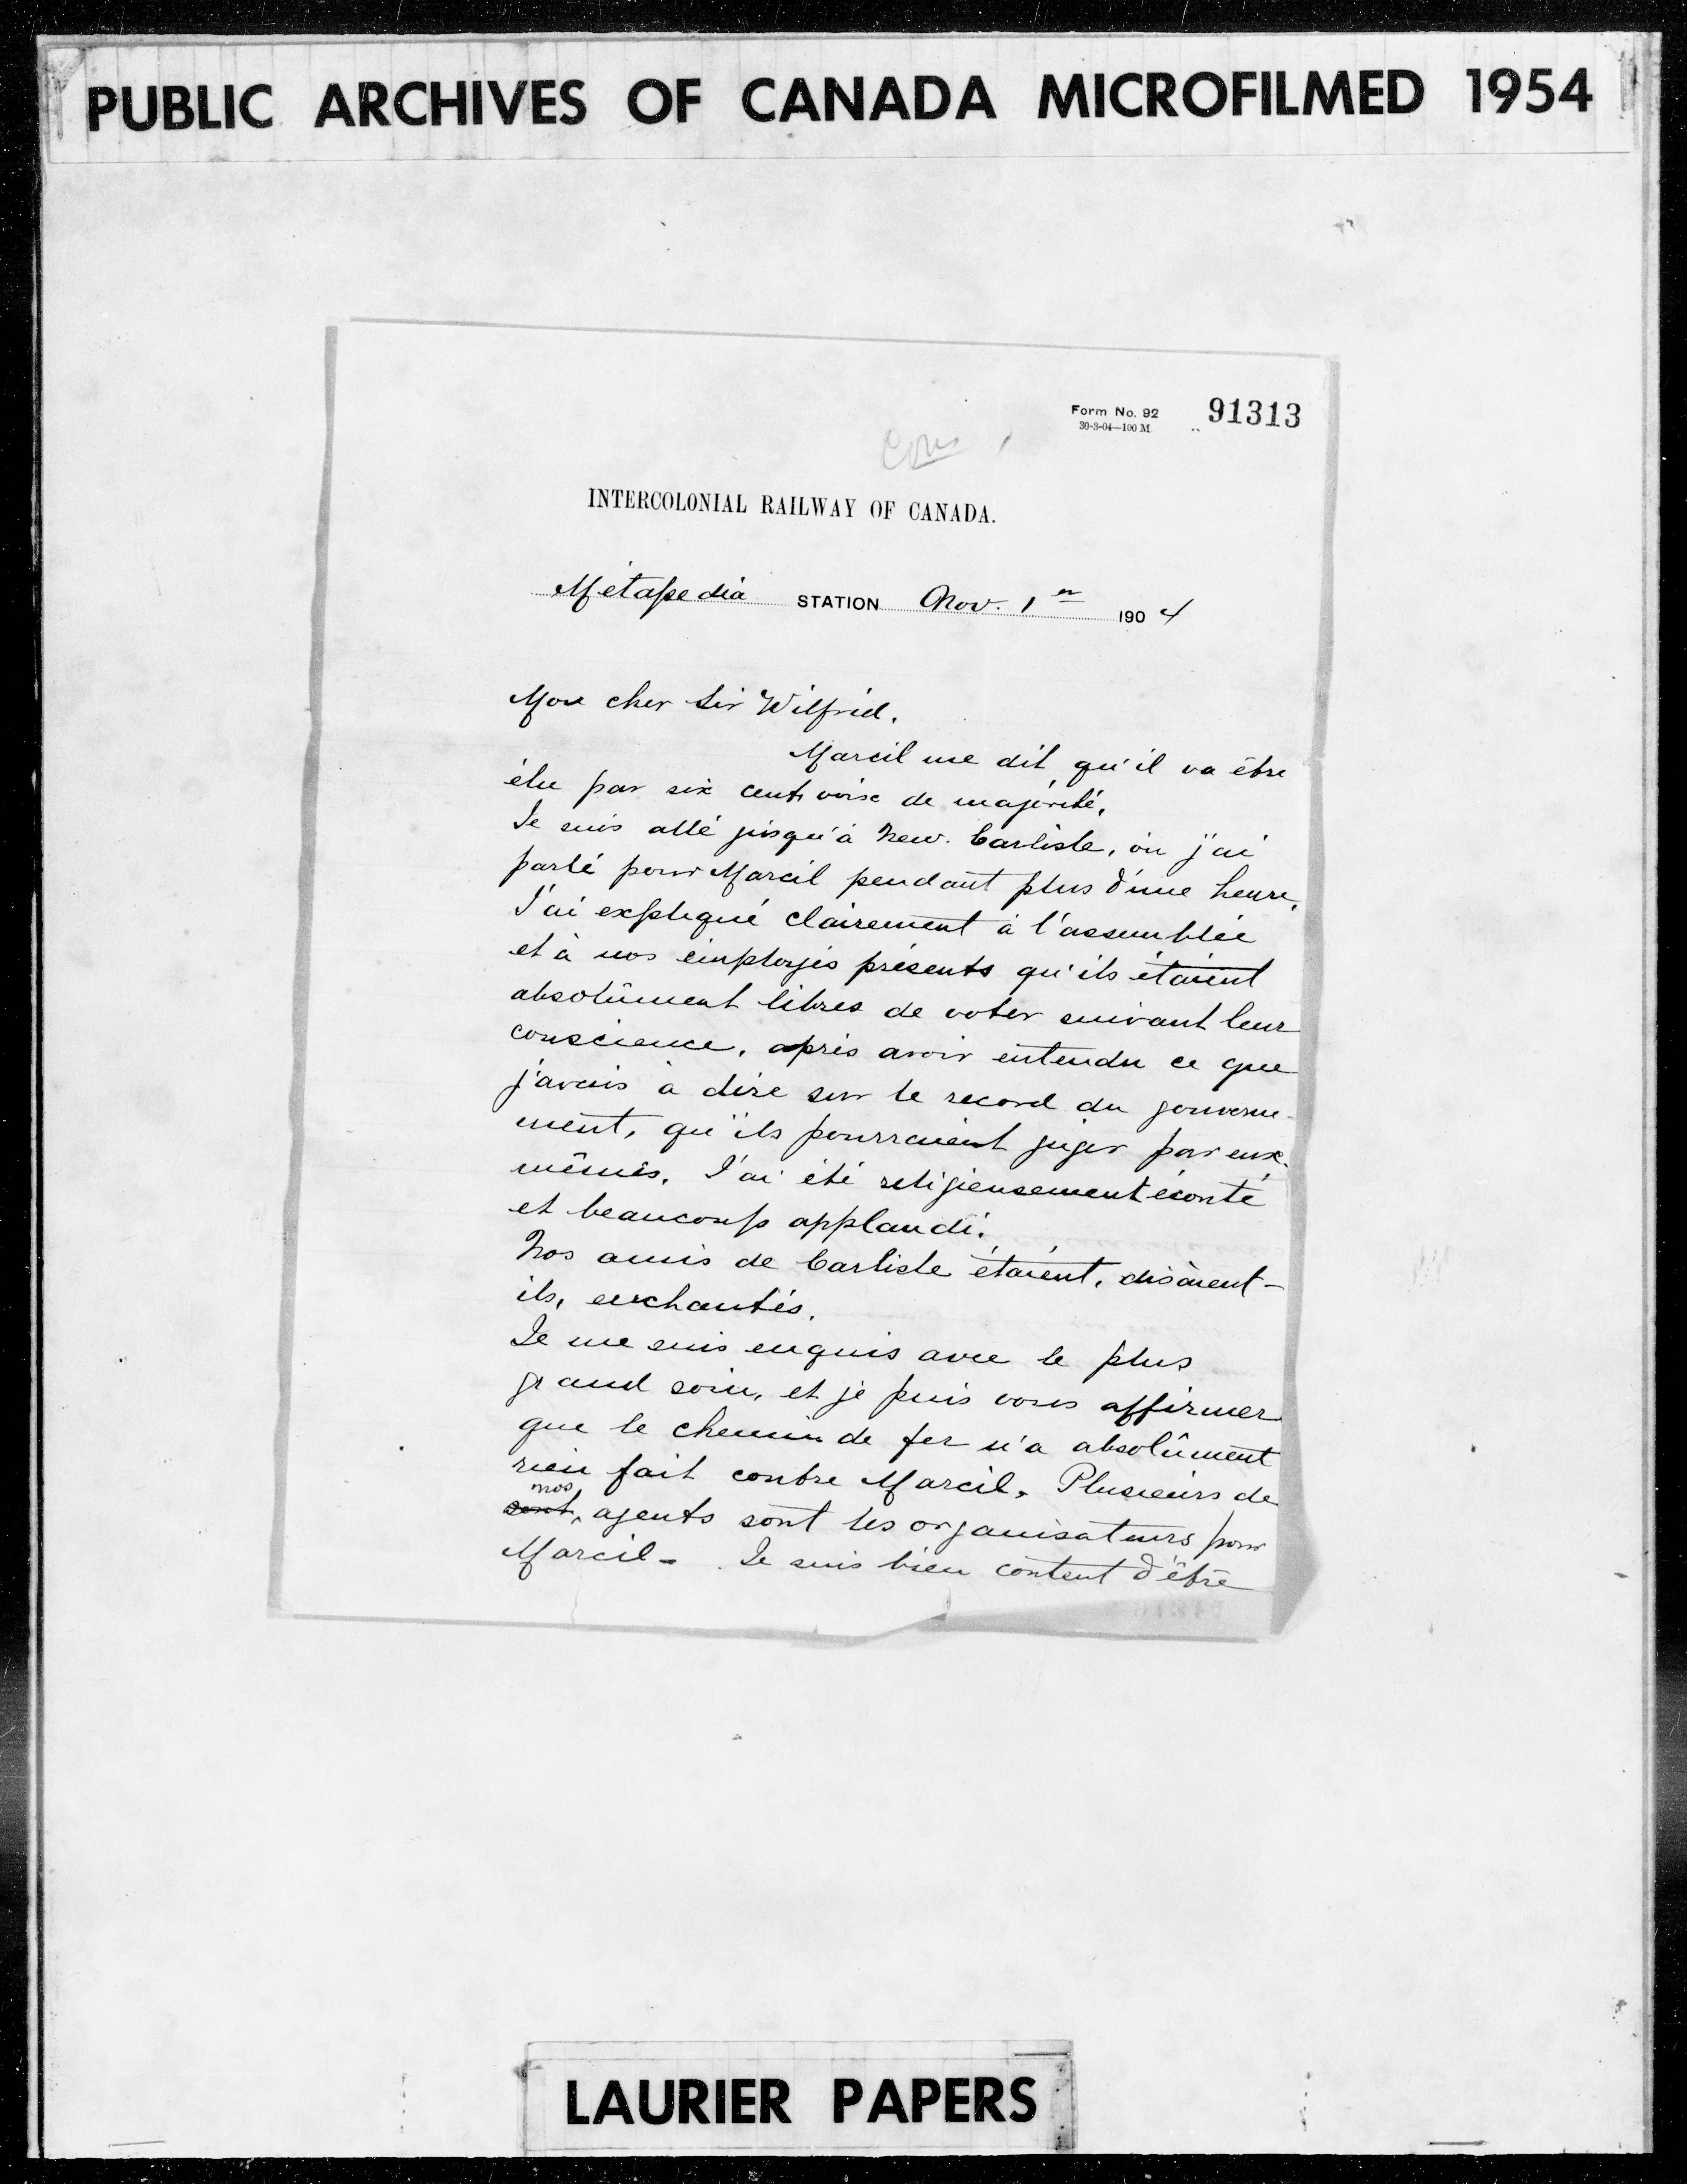 PUBLIC ARCHIVES OF CANADA MICROFILMED 1954
Form No. 92 91313
30-3-04—100 M.
INTERCOLONIAL RAILWAY OF CANADA.
Métapedia STATION Nov. 1er 1904
Mon cher Sir Wilfrid.
Marcil me dit qu'il va être
élu par six cents voix de majorité.
Je suis allé jusqu'à New. Carlisle, où j'ai
parlé pour Marcil pendant plus d'une heure.
J'ai expliqué clairement à l'assemblée
et à nos employés présents qu'ils étaient
absolûment libres de voter suivant leur
conscience, après avoir entendu ce que
j'avais à dire sur le record du gouverne-
ment, qu'ils pourraient juger par eux-
mêmes. J'ai été religieusement écouté
et beaucoup applaudi.
Nos amis de Carlisle étaient, disaient-
ils, enchantés.
Je me suis enquis avec le plus
grand soin, et je puis vous affirmer
que le chemin de fer n'a absolûment
rien fait contre Marcil. Plusieurs de
nos
sont, agents sont les organisateurs pour
Marcil - Je suis bien content d'être
LAURIER PAPERS